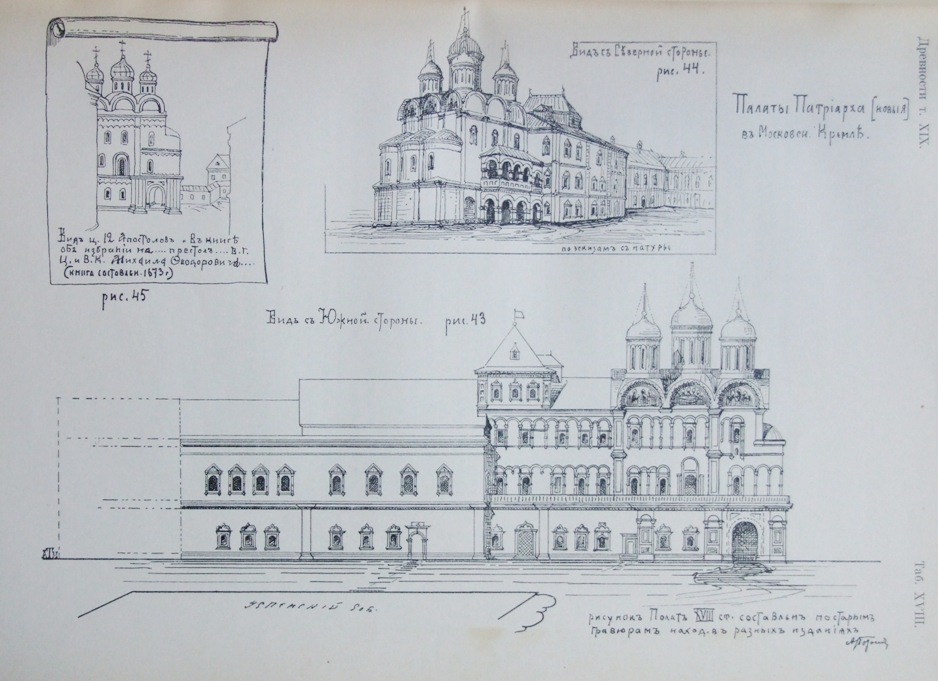 Древности т. XIX.
Таб. XVIII.
Палаты Патріарха [новыя]
въ Московск. Кремлѣ.
Видъ съ Сѣверной стороны.
рис. 44.
по эскизамъ съ натуры
Видъ ц. 12 Апостоловъ въ книгѣ
объ избраніи на .... престолъ .... в. г.
Ц. и В. К. Михаила Ѳеодоровича....
(книга составлен. 1673 г.)
рис. 45
Видъ съ Южной стороны. рис. 43
Успенскій Соб.
рисунокъ Полат XVIII ст. составлен по старым
гравюрамъ наход. въ разныхъ изданіяхъ